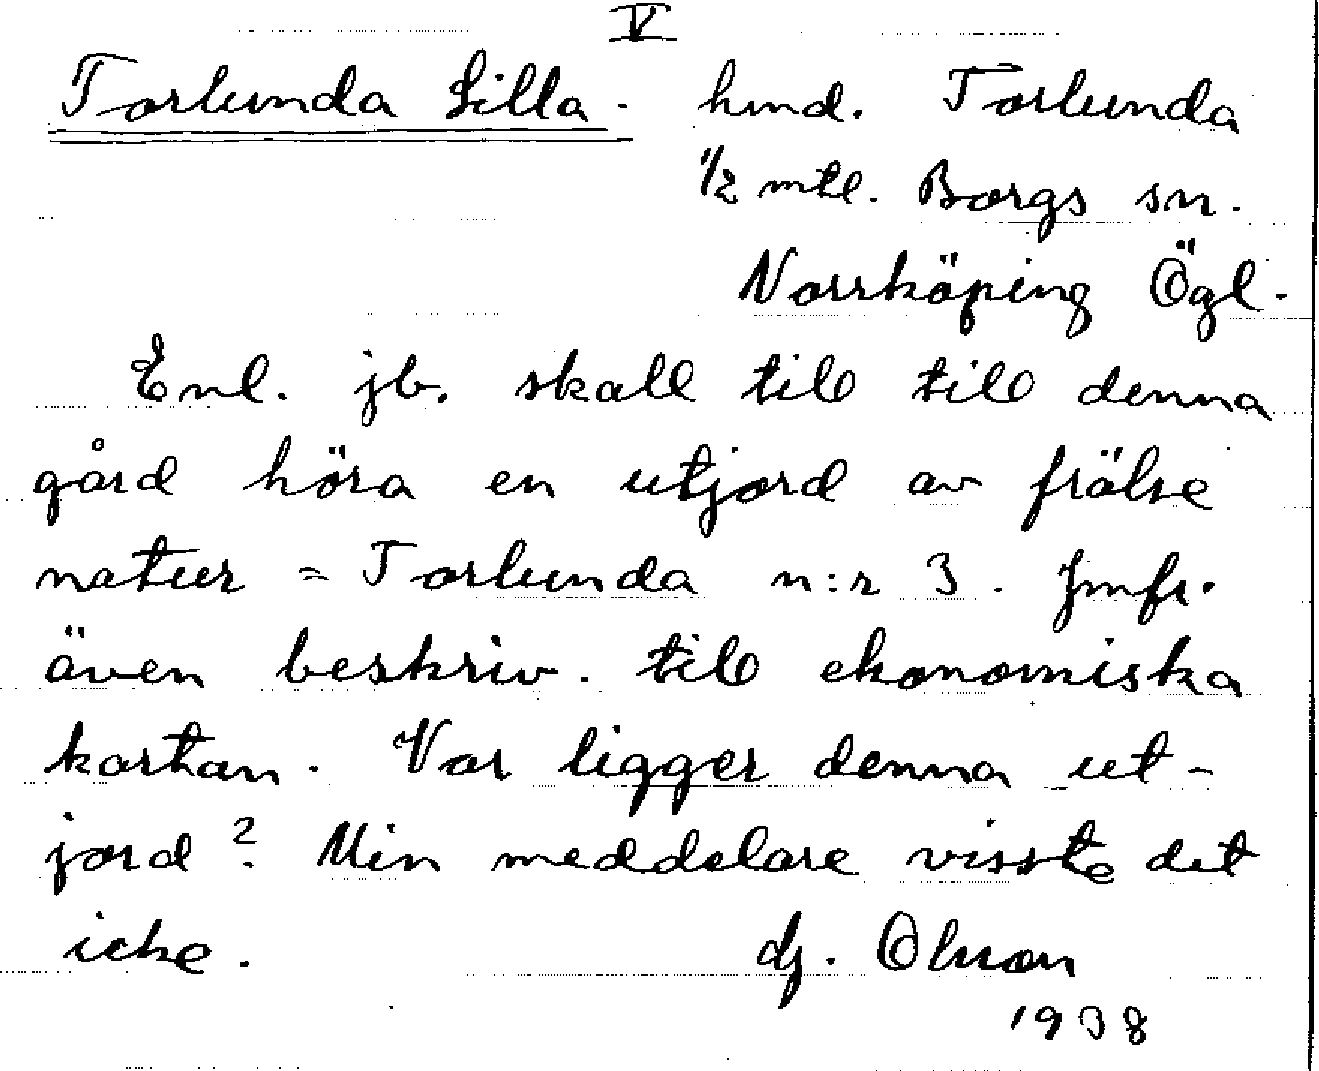 V
Torlunda Lilla. hmd. Torlunda
1/2 mtl. Borgs sn.
Norrköping Ögl.
Enl. jb. skall till till denna
gård höra en utjord av frälse
natur = Torlunda n:r 3. Jmfr.
även beskriv. till ekonomiska
kartan. Var ligger denna ut-
jord? Min meddelare visste det
icke. Olsson
1938